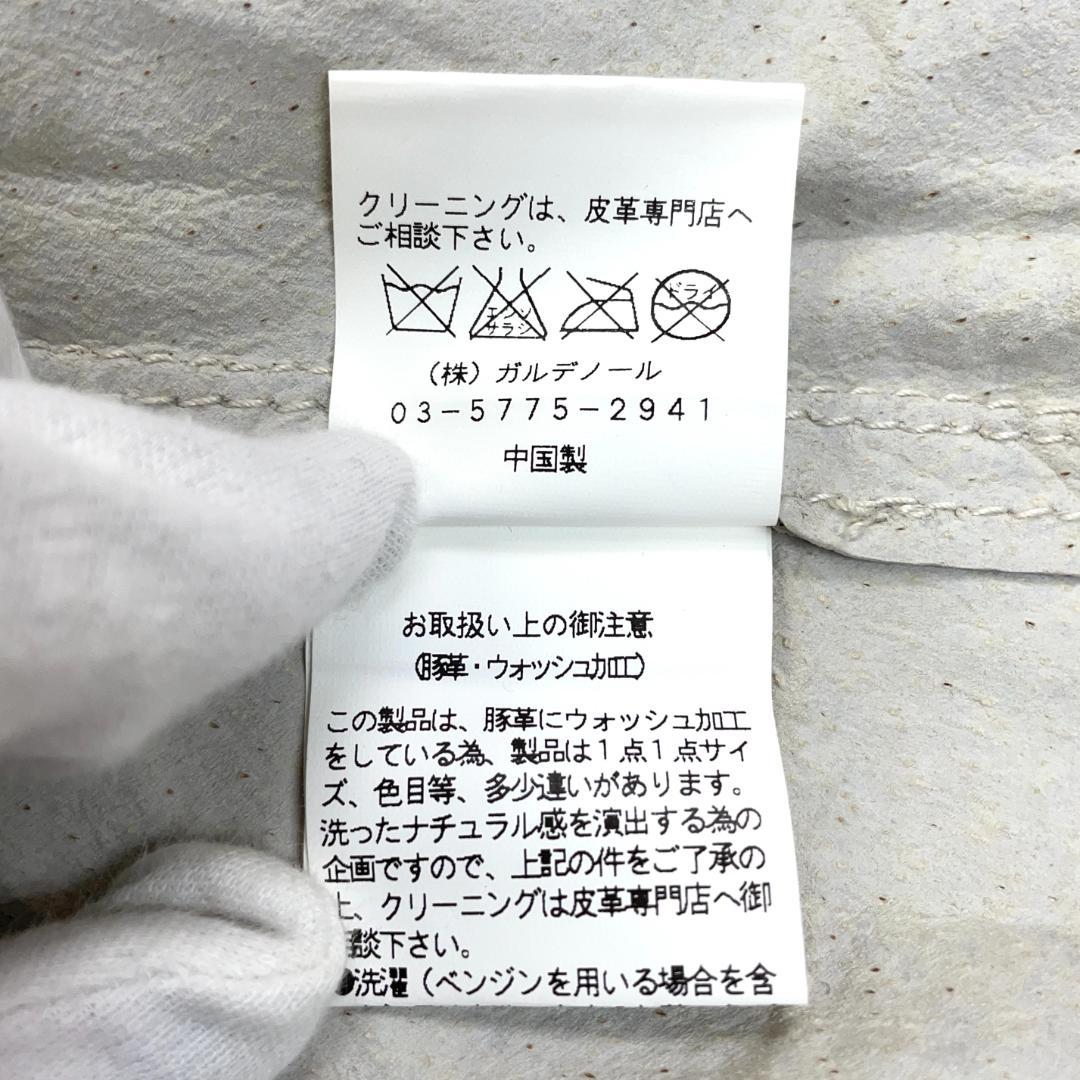 クリーニングは、皮革専門店へ
ご相談下さい。
エンソ
サラシ
ドライ
(株) ガルデノール
03-5775-2941
中国製
お取扱い上の御注意
(豚革・ウォッシュ加工)
この製品は、豚革にウォッシュ加工
をしている為、製品は1点1点サイ
ズ、色目等、多少違いがあります。
洗ったナチュラル感を演出する為の
企画ですので、上記の件をご了承の
上、クリーニングは皮革専門店へ御
談下さい。
●洗濯(ベンジンを用いる場合を含